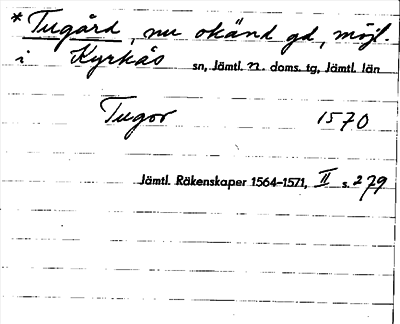 * Tugård, nu okänd gd, möjl.
i Kyrkås sn, Jämtl. n. doms. tg, Jämtl. län
Tugor 1570
Jämtl. Räkenskaper 1564–1571, II s. 279